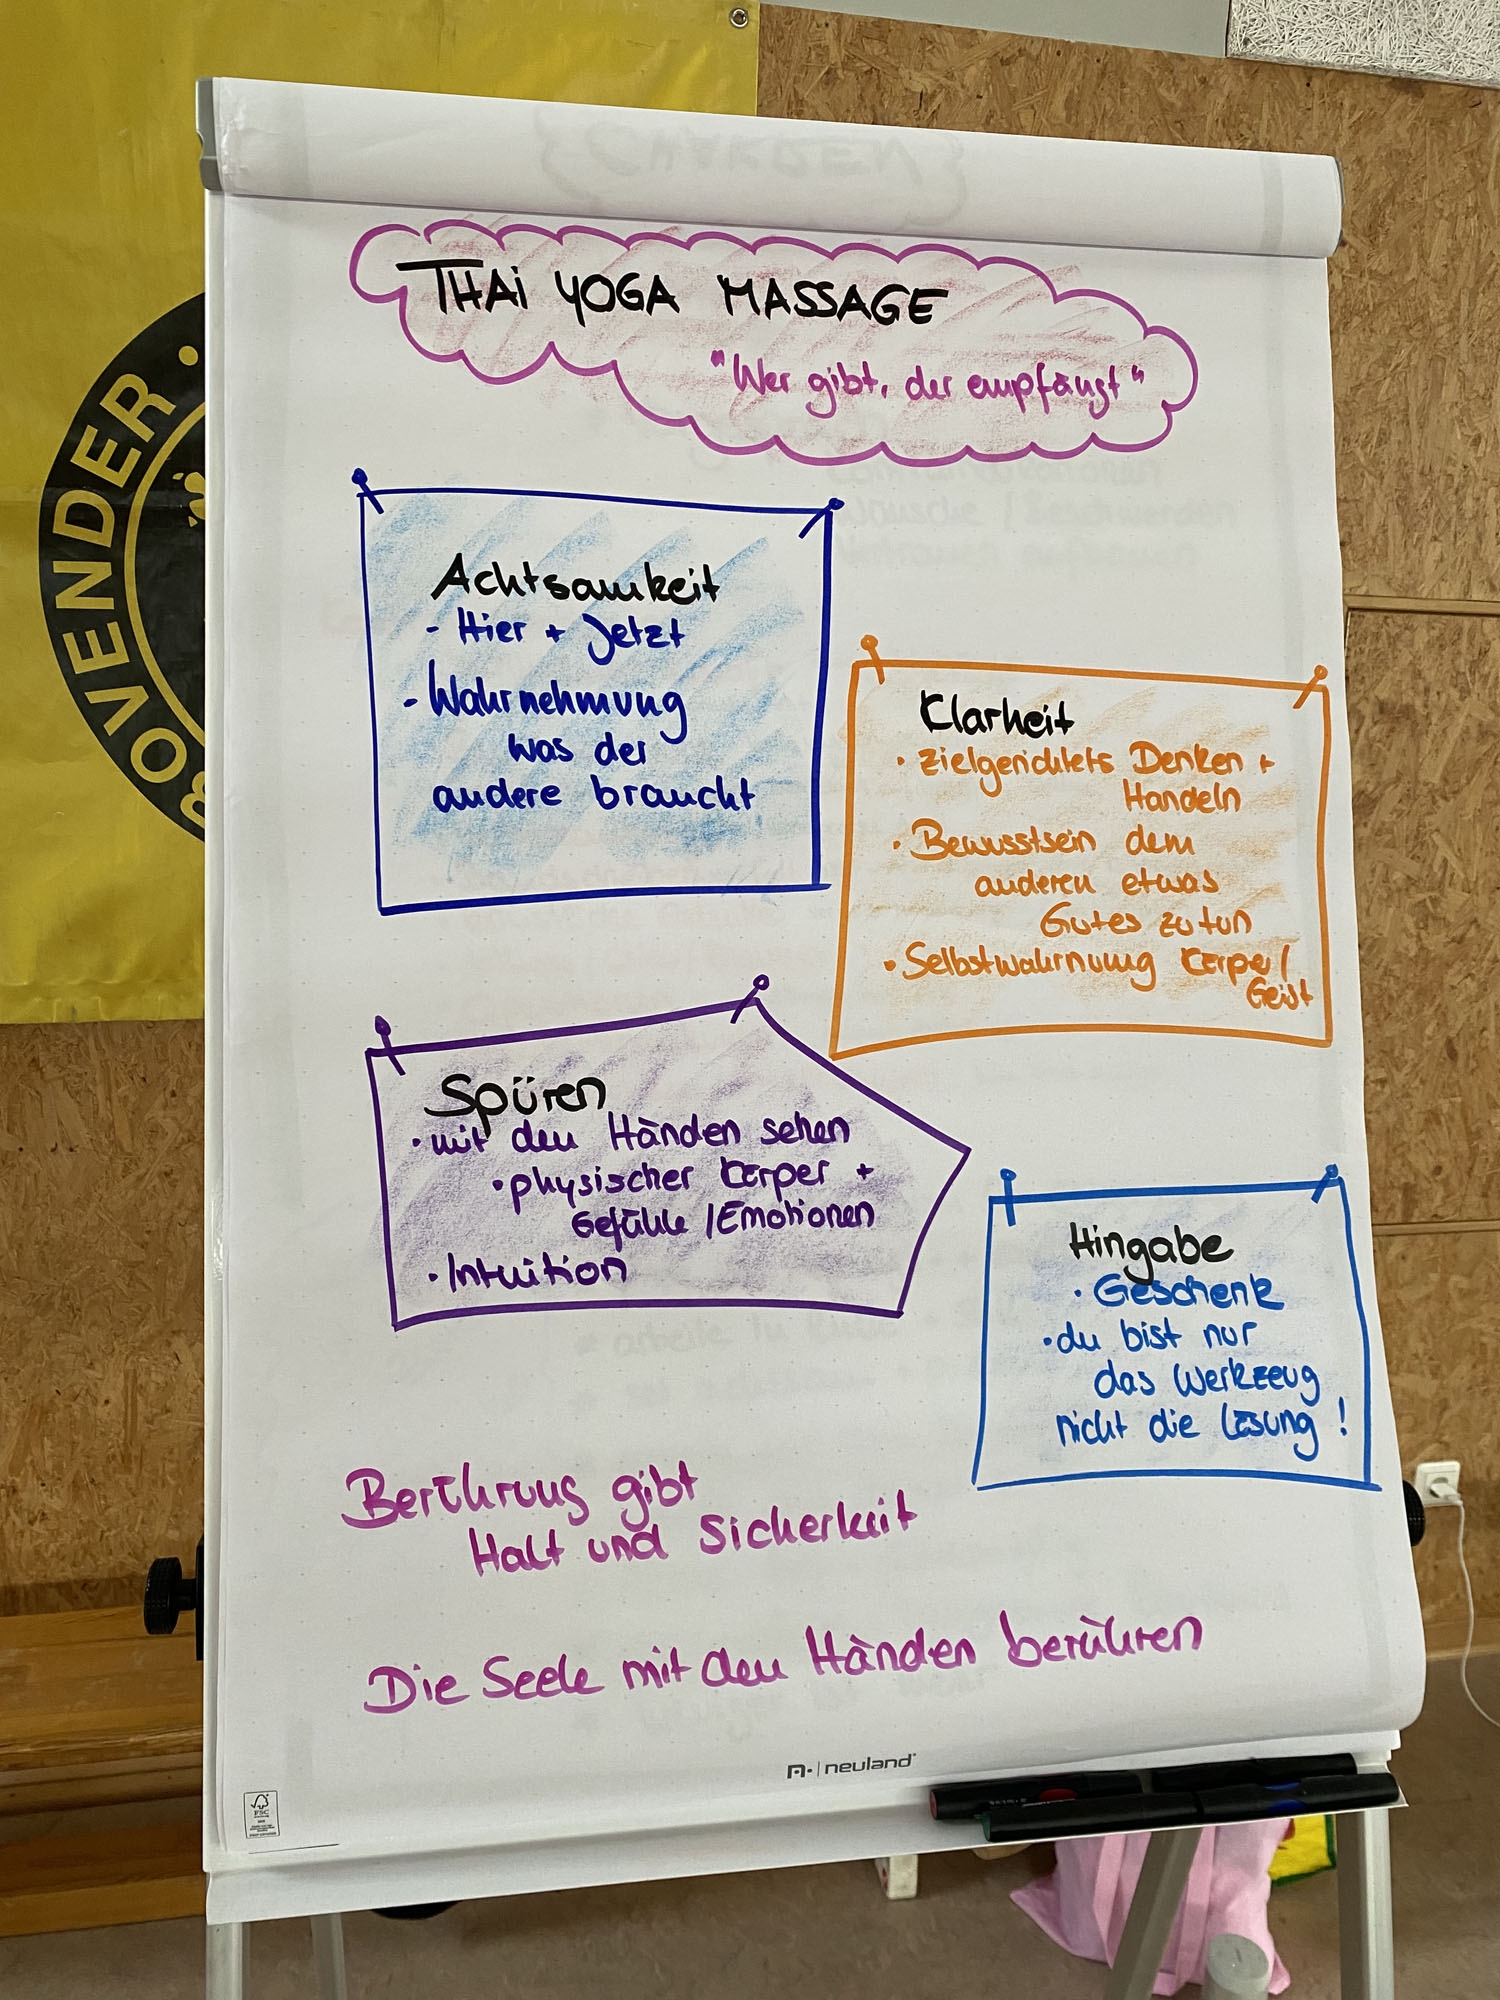 THAI YOGA MASSAGE
"Wer gibt, der empfängt"
Achtsamkeit
- Hier + Jetzt
- Wahrnehmung
was der
andere braucht
Klarheit
• zielgerichtets Denken +
Handeln
• Bewusstsein dem
anderen etwas
Gutes zu tun
• Selbstwahrnung Körper/
Geist
Spüren
• mit den Händen sehen
• physischer Körper +
Gefühle / Emotionen
• Intuition
Hingabe
• Geschenk
• du bist nur
das Werkzeug
nicht die Lösung !
Berührung gibt
Halt und Sicherheit
Die Seele mit den Händen berühren
neuland
FSC
BOVENDER